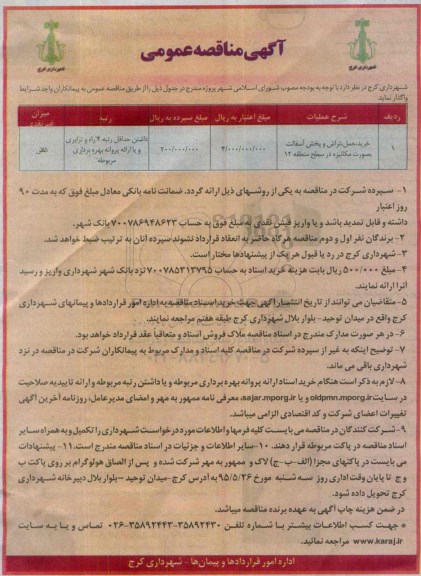 آگهی مناقصه عمومی
شهرداری کرج
شهرداری کرج
شهرداری کرج در نظر دارد با توجه به بودجه مصوب شورای اسلامی شهر پروژه مندرج در جدول ذیل را از طریق مناقصه عمومی به پیمانکاران واجد شرایط
واگذار نماید
ردیف شرح عملیات مبلغ اعتبار به ریال مبلغ سپرده به ریال رتبه میزان
۱ خرید، حمل، تراش و پخش آسفالت بصورت مکانیزه در سطح منطقه ۱۲ ۴/۰۰۰/۰۰۰/۰۰۰ ۲۰۰/۰۰۰/۰۰۰ داشتن حداقل رتبه ۴ راه و ترابری و یا ارائه پروانه بهره برداری مربوطه
۱- سپرده شرکت در مناقصه به یکی از روشهای ذیل ارائه گردد. ضمانت نامه بانکی معادل مبلغ فوق که به مدت ۹۰
روز اعتبار
داشته و قابل تمدید باشد و یا واریز فیش نقدی به مبلغ فوق به حساب ۷۰۰۷۸۶۹۴۸۶۲۳ بانک شهر.
۲- برندگان نفر اول و دوم مناقصه هرگاه حاضر به انعقاد قرارداد نشوند سپرده آنان به ترتیب ضبط خواهد شد.
۳- شهرداری کرج در رد یا قبول هر یک از پیشنهادها مختار است.
۴- مبلغ ۵۰۰/۰۰۰ ریال بابت هزینه خرید اسناد به حساب ۷۰۰۷۸۵۳۱۳۷۹۵ نزد بانک شهر شهرداری واریز و رسید
آنرا ارائه نمایند.
۵- متقاضیان می توانند از تاریخ انتشار آگهی جهت خرید اسناد مناقصه به اداره امور قراردادها و پیمانهای شهرداری
کرج واقع در میدان توحید- بلوار بلال شهرداری کرج طبقه هفتم مراجعه نمایند.
۶- در هر صورت مدارک مندرج در اسناد مناقصه ملاک فروش اسناد و متعاقباً عقد قرارداد خواهد بود.
۷- توضیح اینکه به غیر از سپرده شرکت در مناقصه کلیه اسناد و مدارک مربوط به پیمانکاران شرکت در مناقصه در نزد
شهرداری باقی می ماند.
۸- لازم به ذکر است هنگام خرید اسناد ارائه پروانه بهره برداری مربوطه و یا داشتن رتبه مربوطه و ارائه تاییدیه صلاحیت
در سایت oldpmn.mporg.ir و یا sajar.mporg.ir، معرفی نامه ممهور به مهر و امضای مدیرعامل، روزنامه آخرین آگهی
تغییرات اعضای شرکت و کد اقتصادی الزامی میباشد.
۹- شرکت کنندگان در مناقصه می بایست کلیه فرمها و اطلاعات مورد درخواست شهرداری را تکمیل و به همراه سایر
اسناد مناقصه در پاکت مربوطه قرار دهند. ۱۰- سایر اطلاعات و جزئیات در اسناد مناقصه مندرج است. ۱۱- پیشنهادات
می بایست در پاکتهای مجزا (الف-ب-ج) لاک و ممهور به مهر شرکت شده و پس از الصاق هولوگرام بر روی پاکت ب
و ج تا پایان وقت اداری روز سه شنبه مورخ ۹۵/۵/۲۶ به آدرس کرج- میدان توحید - بلوار بلال دبیرخانه شهرداری
کرج تحویل داده شود.
در ضمن هزینه چاپ آگهی به عهده برنده مناقصه میباشد.
* جهت کسب اطلاعات بیشتر با شماره تلفن ۳۵۸۹۲۴۳۰-۳۵۸۹۲۴۴۳-۰۲۶ تماس و یا به سایت
www.karaj.ir مراجعه نمائید.
اداره امور قراردادها و پیمان ها - شهرداری کرج